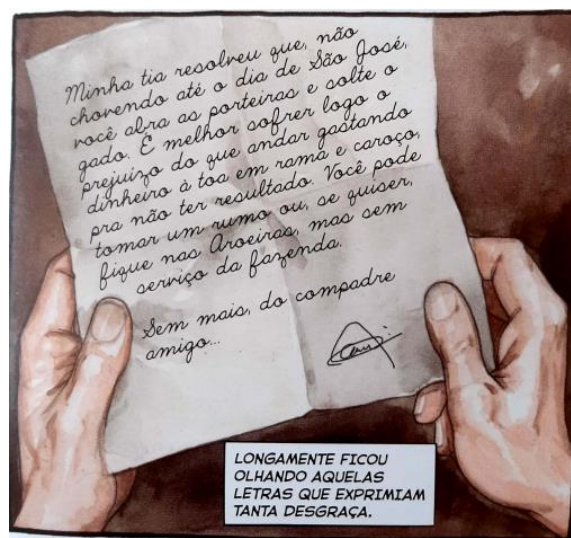 Minha tia resolveu que, não
chovendo até o dia de São José,
você abra as porteiras e solte o
gado. É melhor sofrer logo o
prejuízo do que andar gastando
dinheiro à toa em rama e caroço,
pra não ter resultado. Você pode
tomar um rumo ou, se quiser,
fique nas Aroeiras, mas sem
serviço da fazenda.
Sem mais, do compadre
amigo...
LONGAMENTE FICOU
OLHANDO AQUELAS
LETRAS QUE EXPRIMIAM
TANTA DESGRAÇA.